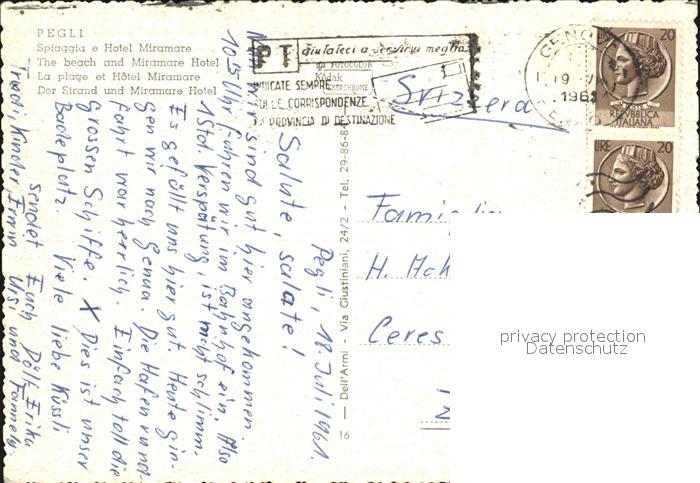 PEGLI
Spiaggia e Hotel Miramare
The beach and Miramare Hotel
La plage et Hôtel Miramare
Der Strand und Miramare Hotel
aiutateci a servirvi meglio
FOTOCOLOR
Kodak
EKTACHROME
INDICATE SEMPRE
SULLE CORRISPONDENZE
PROVINCIA DI DESTINAZIONE
Svizzera
GENOVA
19
1961
LIRE 20
REPVBBLICA
ITALIANA
LIRE 20
Pegli, 18. Juli 1961.
Salute, salate!
Nun wir sind gut hier angekommen.
10.15 Uhr fuhren wir im Bahnhof ein. Also
1 Std. Verspätung, ist nicht schlimm.
Es gefällt uns hier gut. Heute gin-
gen wir nach Genua. Die Hafenrund
fahrt war herrlich. Einfach toll die
grossen Schiffe. X Dies ist unser
Badeplatz. Viele liebe Küssli
sendet Euch Dölf, Erika
Trudi, Kinder Irma Ursi und
Dell'Armi - Via Giustiniani, 24/2 - Tel. 29-86-84
16
H.
Ceres
privacy protection
Datenschutz